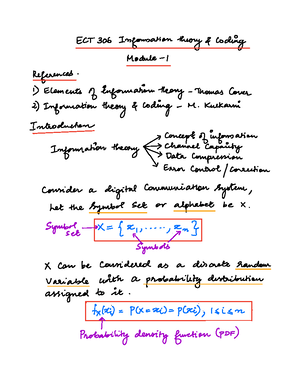 ECT 306 Information theory & Coding
Module - 1
References.
1) Elements of Information theory - Thomas Cover
2) Information theory & Coding - M. Kulkarni
Introduction
Information theory
Concept of information
Channel Capacity
Data Compression
Error Control / Correction
Consider a digital Communication System,
Let the Symbol Set or alphabet be X.
Symbol Set
X = { x₁, ....., xₙ }
Symbols
X can be Considered as a discrete random
Variable with a probability distribution
assigned to it.
fₓ(xᵢ) = P(X = xᵢ) = P(xᵢ), 1 ≤ i ≤ n
Probability density function (PDF)